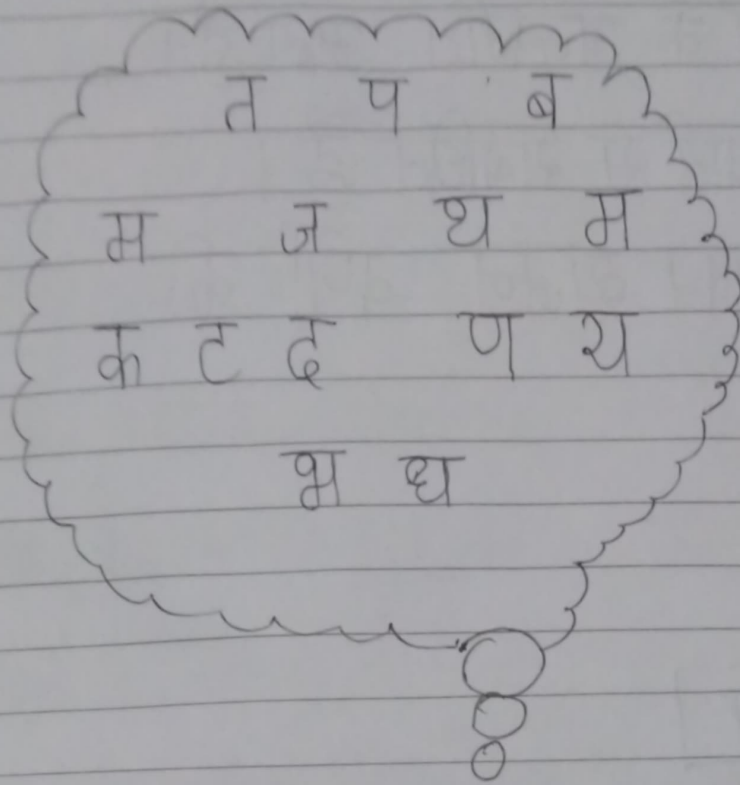 त प ब
म ज थ म
क ट द ण य
भ घ